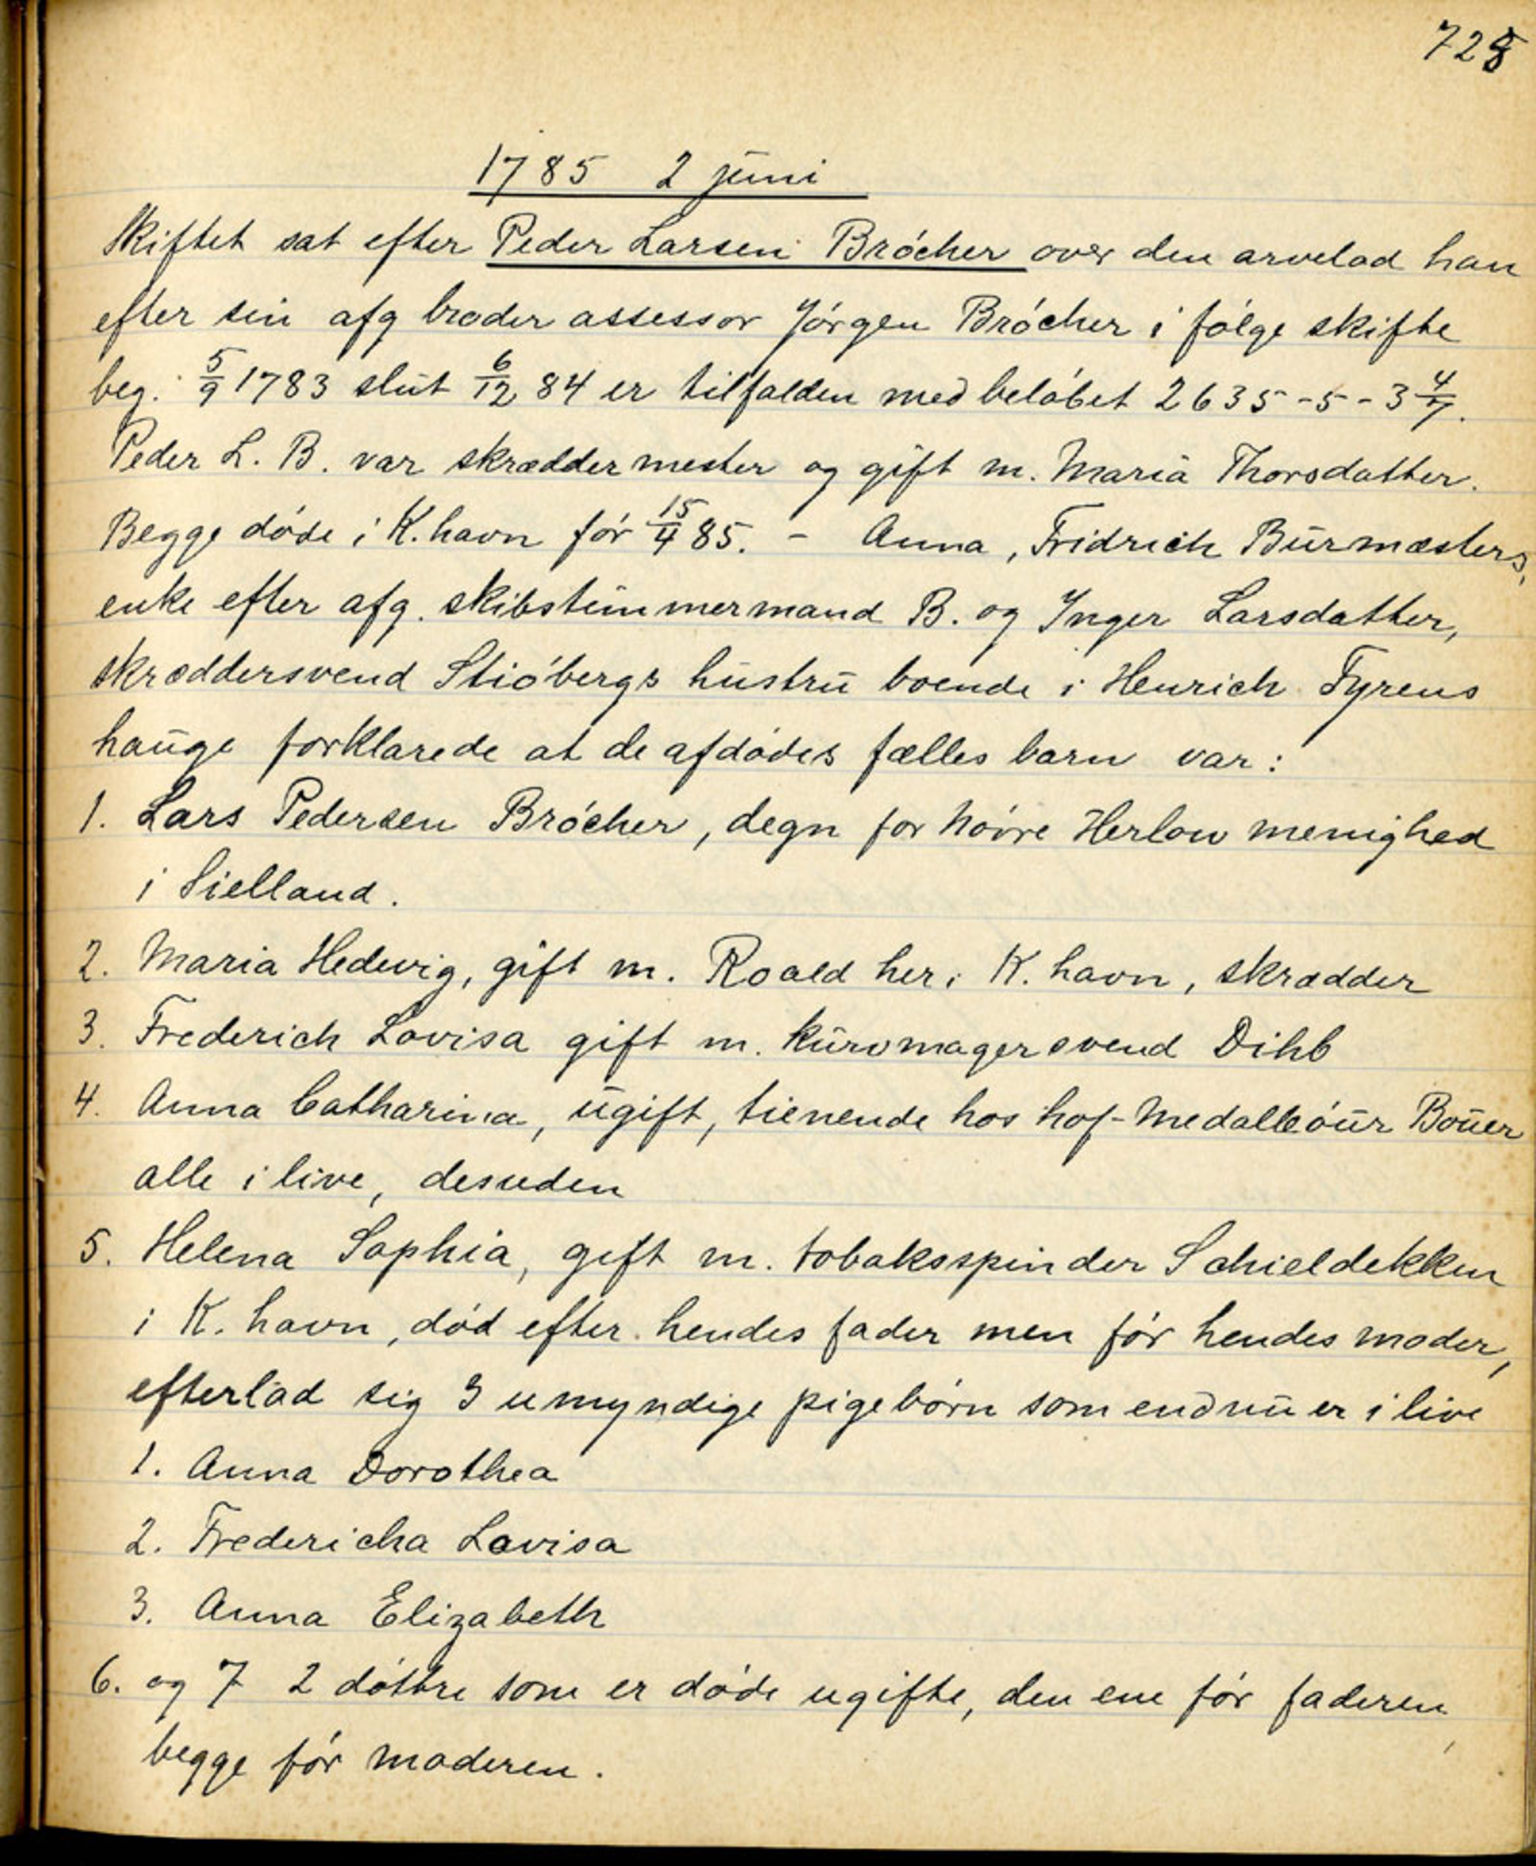 725
1785 2 juni
Skiftet sat efter Peder Larsen Bröcher over den arvelod han
efter sin afg broder assessor Jörgen Bröcher i følge skifte
beg. 5/9 1783 slut 6/12 84 er tilfalden med beløbet 2635-5-3 4/7.
Peder L. B. var skræddermester og gift m. Maria Thorsdatter.
Begge døde i K.havn før 15/4 85. - Anna, Fridrich Burmæsters,
enke efter afg. skibstimmermand B. og Inger Larsdatter,
skræddersvend Stiøbergs hustru boende i Henrich Fyrens
hauge forklarede at de afdødes fælles barn var:
1. Lars Pedersen Bröcher, degn for Nörre Herlow menighed
i Sielland.
2. Maria Hedevig, gift m. Roald her i K.havn, skrædder
3. Frederich Lovisa gift m. kurvmagersvend Dihb
4. Anna Catharina, ugift, tienende hos hof-Medalleöur Bauer
alle i live, desuden
5. Helena Sophia, gift m. tobaksspinder Schieldekken
i K.havn, død efter hendes fader men før hendes moder,
efterlod sig 3 umyndige pigebørn som endnu er i live
1. Anna Dorothea
2. Fredericha Lovisa
3. Anna Elizabeth
6. og 7 2 døttre som er døde ugifte, den ene før faderen,
begge før moderen.